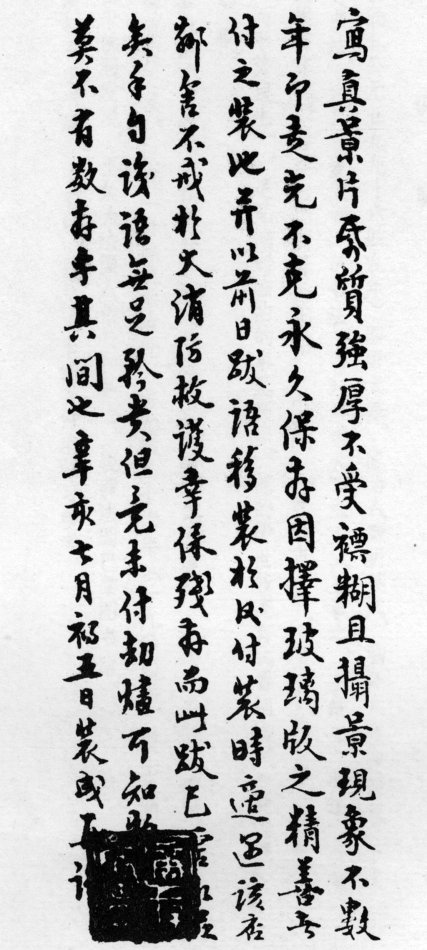 寫真景片紙質強厚不受褾糊且攝景現象不數
年即走光不克永久保存因擇玻璃版之精善者
付之裝池并以前日跋語移裝於後付裝時適遇該店
鄰舍不戒於火消防救護幸保殘存而此跋已
矣手自誤語無足矜貴但竟未付劫燼可知
莫不有數存乎其間也辛亥七月初五日裝成